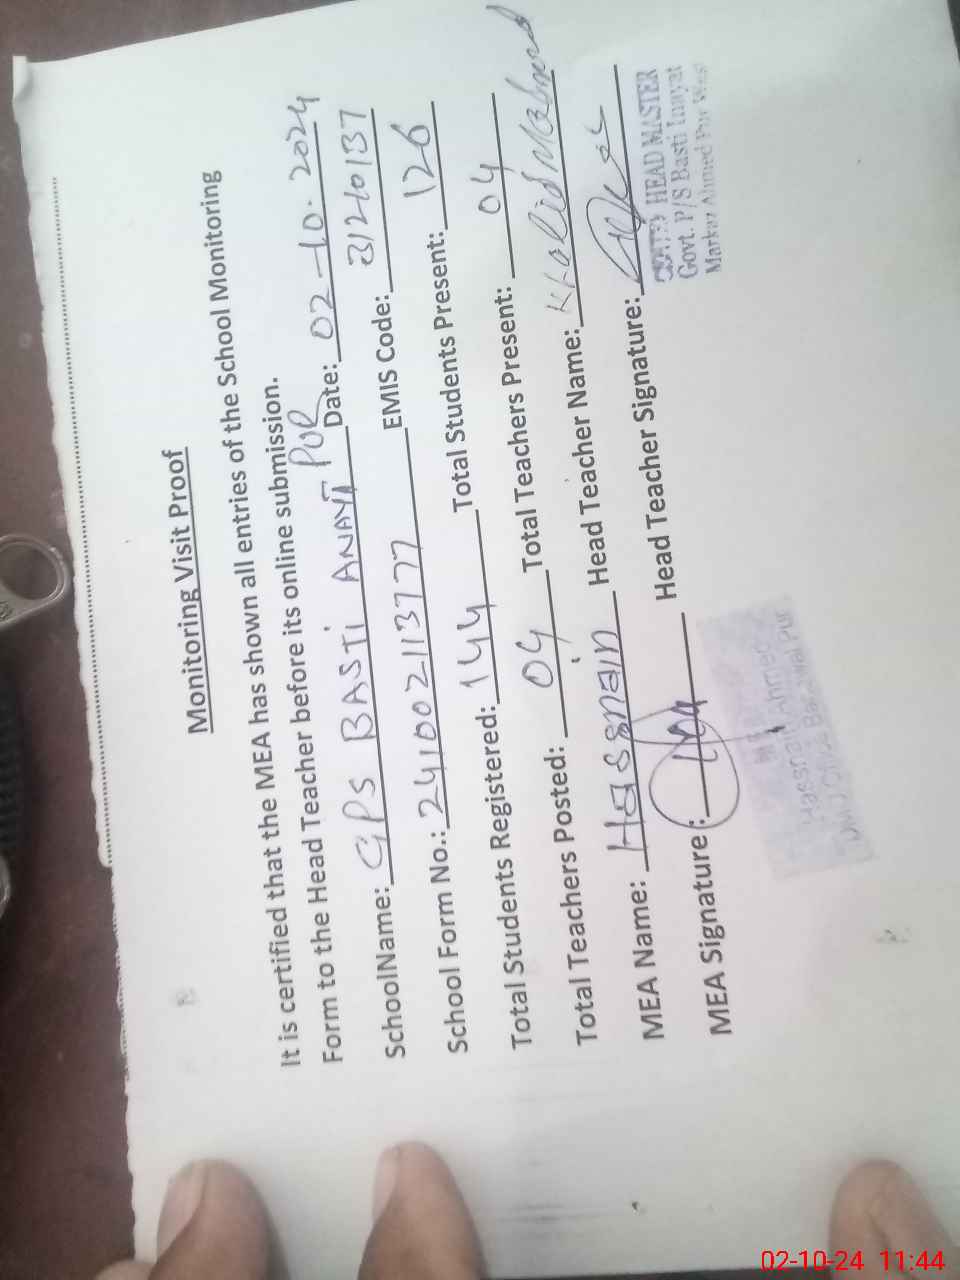 Monitoring Visit Proof
It is certified that the MEA has shown all entries of the School Monitoring
Form to the Head Teacher before its online submission.
SchoolName: GPS BASTI ANAYT PUR Date: 02-10-2024
School Form No.: 241002113777 EMIS Code: 31210137
Total Students Registered: 144 Total Students Present: 126
Total Teachers Posted: 04 Total Teachers Present: 04
MEA Name: Hassnain Head Teacher Name: Khalid Mahmood
MEA Signature: Head Teacher Signature:
HEAD MASTER
Govt. P/S Basti Inayat
Markaz Ahmed Pur West
Hassnain Ahmed
DMO Office Bahawal Pur
02-10-24 11:44